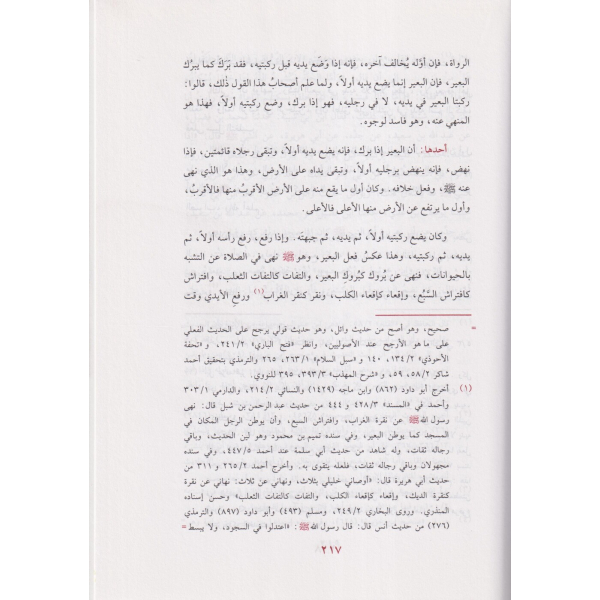 الرواة، فإن أوَّله يُخالف آخره، فإنه إذا وَضَع يديه قبل ركبتيه، فقد بَرَكَ كما يبرُك
البعير، فإن البعير إنما يضع يديه أولاً، ولما علم أصحابُ هذا القول ذٰلك، قالوا:
ركبتا البعير في يديه، لا في رجليه، فهو إذا برك، وضع ركبتيه أولاً، فهذا هو
المنهي عنه، وهو فاسد لوجوه.
أحدها: أن البعير إذا برك، فإنه يضع يديه أولاً، وتبقى رجلاه قائمتين، فإذا
نهض، فإنه ينهض برجليه أولاً، وتبقى يداه على الأرض، وهذا هو الذي نهى
عنه ﷺ، وفعل خلافه. وكان أول ما يقع منه على الأرض الأقربُ منها فالأقربُ،
وأول ما يرتفع عن الأرض منها الأعلى فالأعلى.
وكان يضع ركبتيه أولاً، ثم يديه، ثم جبهتَه. وإذا رفع، رفع رأسه أولاً، ثم
يديه، ثم ركبتيه، وهذا عكسُ فعل البعير، وهو ﷺ نهى في الصلاة عن التشبه
بالحيوانات، فنهى عن بُروك كبُروكِ البعير، والتفات كالتفات الثعلب، وافتراش
كافتراش السَّبُع، وإقعاء كإقعاء الكلب، ونقر كنقر الغراب(١) ورفعِ الأيدي وقت
= صحيح، وهو أصح من حديث وائل، وهو حديث قولي يرجح على الحديث الفعلي
على ما هو الأرجح عند الأصوليين، وانظر «فتح الباري» ٢٤١/٢، و«تحفة
الأحوذي» ١٣٤/٢، ١٤٠ و«سبل السلام» ٢٦٣/١، ٢٦٥ والترمذي بتحقيق أحمد
شاكر ٥٨/٢، ٥٩، و«شرح المهذب» ٣٩٣/٣، ٣٩٥ للنووي.
(١) أخرج أبو داود (٨٦٢) وابن ماجه (١٤٢٩) والنسائي ٢١٤/٢، والدارمي ٣٠٣/١
وأحمد في «المسند» ٤٢٨/٣ و ٤٤٤ من حديث عبد الرحمن بن شبل قال: نهى
رسول الله ﷺ عن نقرة الغراب، وافتراش السبع، وأن يوطن الرجل المكان في
المسجد كما يوطن البعير، وفي سنده تميم بن محمود وهو لين الحديث، وباقي
رجاله ثقات، وله شاهد من حديث أبي سلمة عند أحمد ٤٤٧/٥، وفي سنده
مجهولان وباقي رجاله ثقات، فلعله يتقوى به. وأخرج أحمد ٢٦٥/٢ و ٣١١ من
حديث أبي هريرة قال: «أوصاني خليلي بثلاث، ونهاني عن ثلاث: نهاني عن نقرة
كنقرة الديك، وإقعاء كإقعاء الكلب، والتفات كالتفات الثعلب» وحسن إسناده
المنذري. وروى البخاري ٢٤٩/٢، ومسلم (٤٩٣) وأبو داود (٨٩٧) والترمذي
(٢٧٦) من حديث أنس قال: قال رسول الله ﷺ: «اعتدلوا في السجود، ولا يبسط =
٢١٧